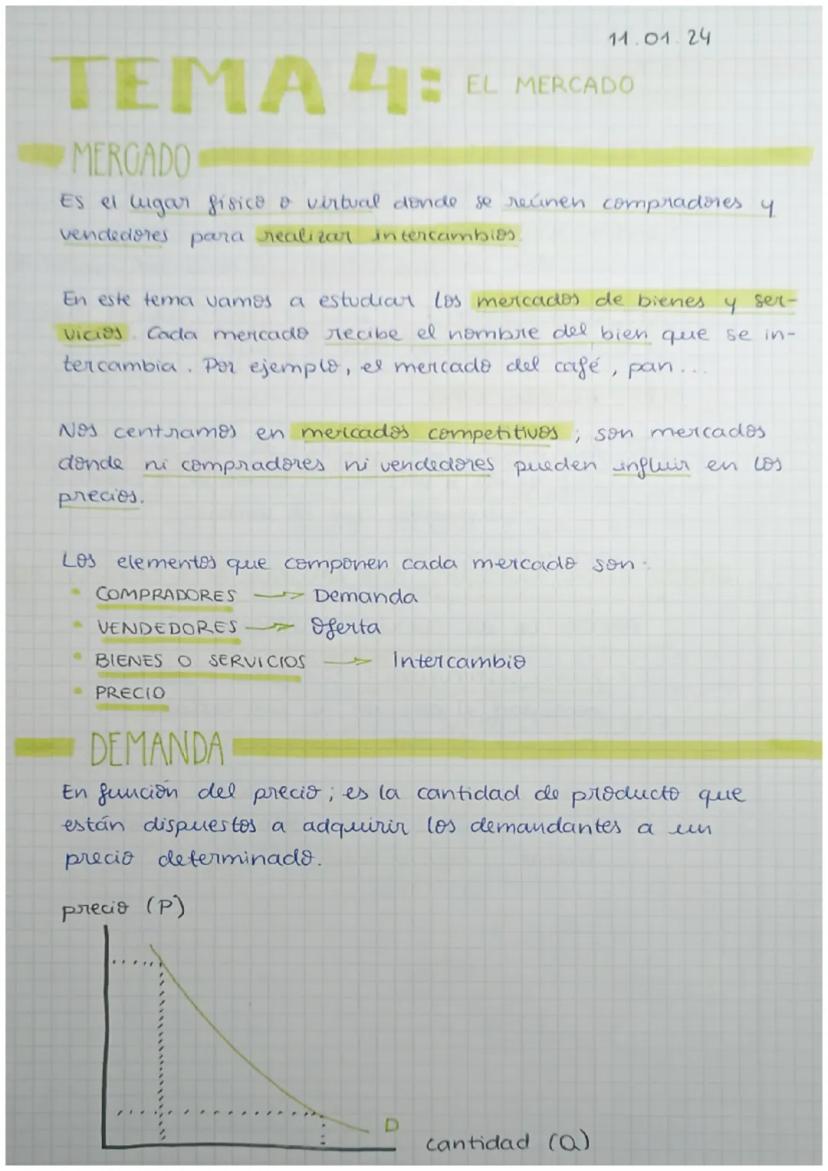 11.01.24
TEMA 4: EL MERCADO
MERCADO
Es el lugar físico o virtual donde se reúnen compradores y
vendedores para realizar intercambios.
En este tema vamos a estudiar los mercados de bienes y ser-
vicios. Cada mercado recibe el nombre del bien que se in-
tercambia. Por ejemplo, el mercado del café, pan...
Nos centramos en mercados competitivos; son mercados
donde ni compradores ni vendedores pueden influir en los
precios.
Los elementos que componen cada mercado son:
• COMPRADORES → Demanda
• VENDEDORES → Oferta
• BIENES O SERVICIOS → Intercambio
• PRECIO
DEMANDA
En función del precio; es la cantidad de producto que
están dispuestos a adquirir los demandantes a un
precio determinado.
precio (P)
D
cantidad (Q)